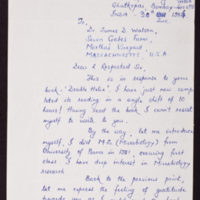 Ghatkopar, Bombay
India 30th 1986
To,
Dr James D Watson
Seven Gates Farm,
Martha's Vineyard
MASSACHUSETTS U.S.A
Dear & Respected Sir,
This is in response to your
book 'Double Helix'. I have just now comp
leted its reading in a single shift of 10
hours! Having read the book, I cannot resist
myself to write to you.
By the way, let me introduce
myself, I did M.Sc (Microbiology) from
University of in 1981, securing first
class. I have deep interest in Microbiology
research
Back to the previous point,
let me express the feeling of gratitude
towards you as I